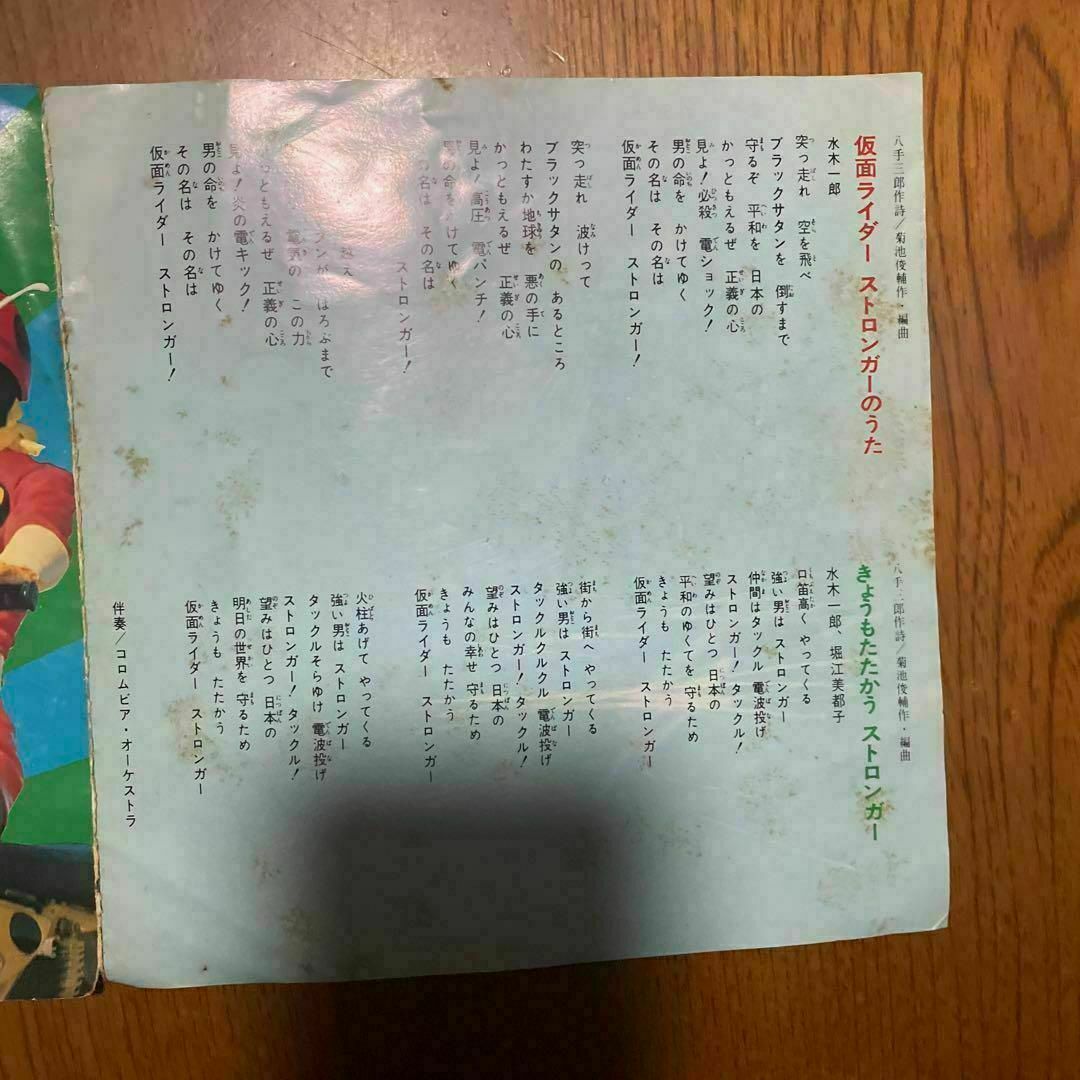 八手三郎作詩/菊池俊輔作・編曲
仮面ライダー ストロンガーのうた
水木一郎
突っ走れ 空を飛べ
ブラックサタンを 倒すまで
守るぞ 平和を 日本の
かっともえるぜ 正義の心
見よ!必殺 電ショック!
男の命を かけてゆく
その名は その名は
仮面ライダー ストロンガー!
突っ走れ 波けって
ブラックサタンの あるところ
わたすか地球を 悪の手に
かっともえるぜ 正義の心
見よ!高圧 電パンチ!
男の命をかけてゆく
の名は その名は
ストロンガー!
越え
ンが ほろぶまで
電気の この力
っともえるぜ 正義の心
見よ!炎の電キック!
男の命を かけてゆく
その名は その名は
仮面ライダー ストロンガー!
八手三郎作詩/菊池俊輔作・編曲
きょうもたたかう ストロンガー
水木一郎、堀江美都子
口笛高く やってくる
強い男は ストロンガー
仲間はタックル 電波投げ
ストロンガー!タックル!
望みはひとつ 日本の
平和のゆくてを 守るため
きょうも たたかう
仮面ライダー ストロンガー
街から街へ やってくる
強い男は ストロンガー
タックルクルクル 電波投げ
ストロンガー!タックル!
望みはひとつ 日本の
みんなの幸せ 守るため
きょうも たたかう
仮面ライダー ストロンガー
火柱あげて やってくる
強い男は ストロンガー
タックルそらゆけ 電波投げ
ストロンガー!タックル!
望みはひとつ 日本の
明日の世界を 守るため
きょうも たたかう
仮面ライダー ストロンガー
伴奏/コロムビア・オーケストラ